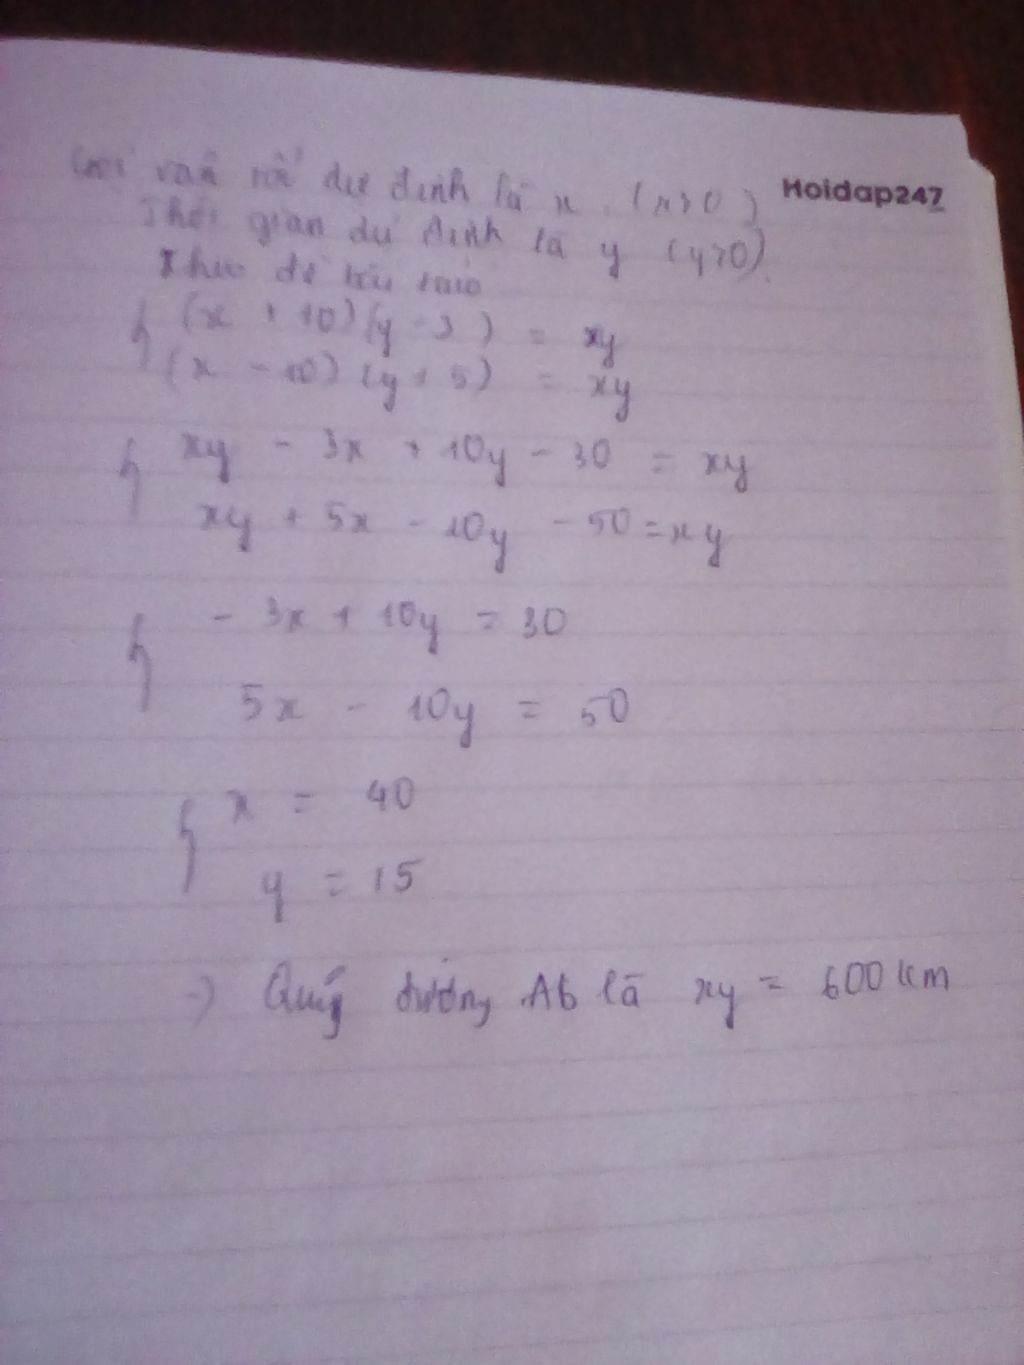 Gọi vận tốc dự định là x (x>0)
Hoidap247
Thời gian dự định là y (y>0)
Theo đề bài
(x + 10)(y - 3) = xy
(x - 10)(y + 5) = xy
xy - 3x + 10y - 30 = xy
xy + 5x - 10y - 50 = xy
- 3x + 10y = 30
5x - 10y = 50
x = 40
y = 15
=> Quãng đường AB là xy = 600 km